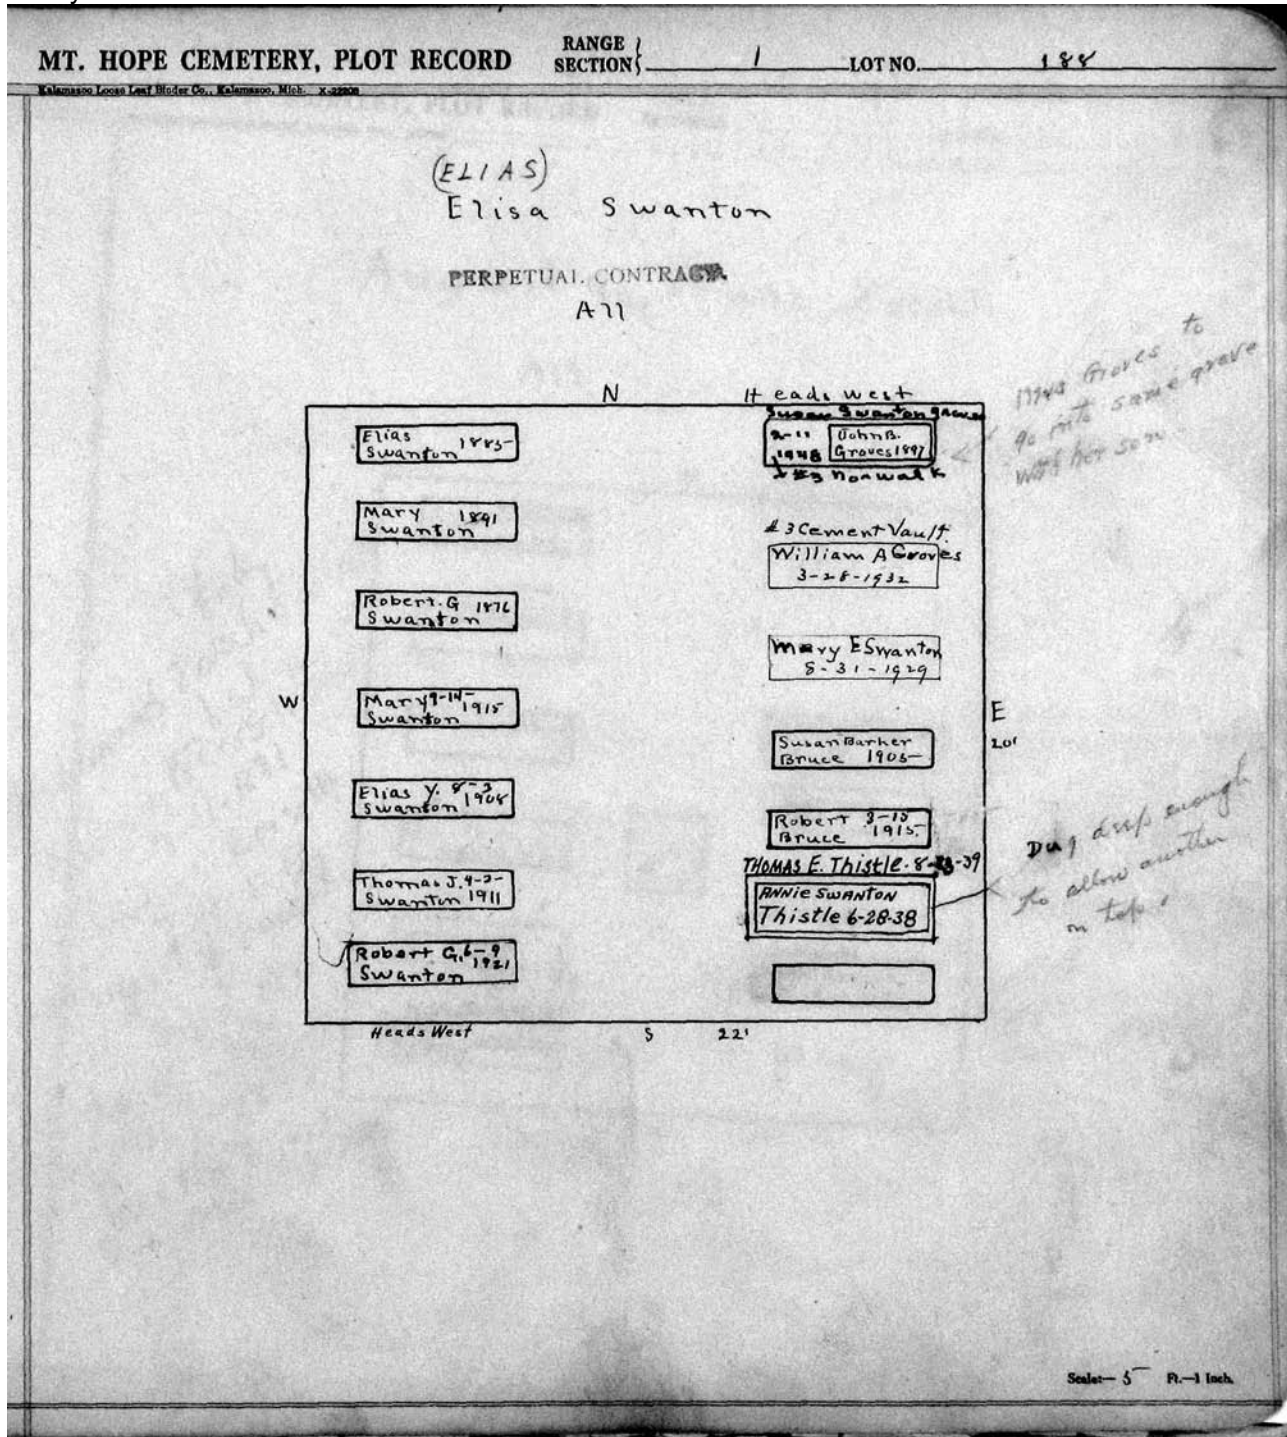 MT. HOPE CEMETERY, PLOT RECORD
RANGE
SECTION
1
LOT NO. 188
Kalamazoo Loose Leaf Binder Co., Kalamazoo, Mich. X-22208
(ELIAS)
Elisa Swanton
PERPETUAL CONTRACT
All
N
Heads west
Elias 1885
Swanton
Mary 1891
Swanton
Robert. G 1876
Swanton
Mary 9-14-1915
Swanton
Elias Y. 8-3
Swanton 1908
Thomas J. 4-2-
Swanton 1911
Robert G. 6-9
1921
Swanton
W
Heads West
S
22'
Susan Swanton Groves
2-11
1948
John B.
Groves 1897
#3 Norwalk
#3 Cement Vault.
William A Groves
3-28-1932
Mary E Swanton
8-31-1929
Susan Barker
Bruce 1905
Robert 3-15
Bruce 1915.
THOMAS E. Thistle. 8- -39
ANNIE SWANTON
Thistle 6-28-38
E
20'
Mrs Groves to
go into same grave
with her son.
Dug deep enough
to allow another
on top.
Scale:— 5 Ft.—1 Inch.